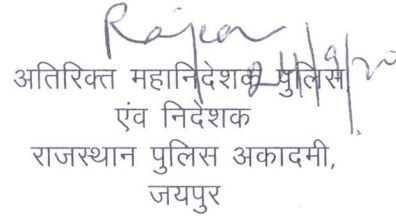 Rajeev
24/9/20
अतिरिक्त महानिदेशक पुलिस
एंव निदेशक
राजस्थान पुलिस अकादमी,
जयपुर